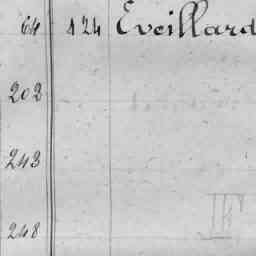 64 124 Eveillard
202
243
248